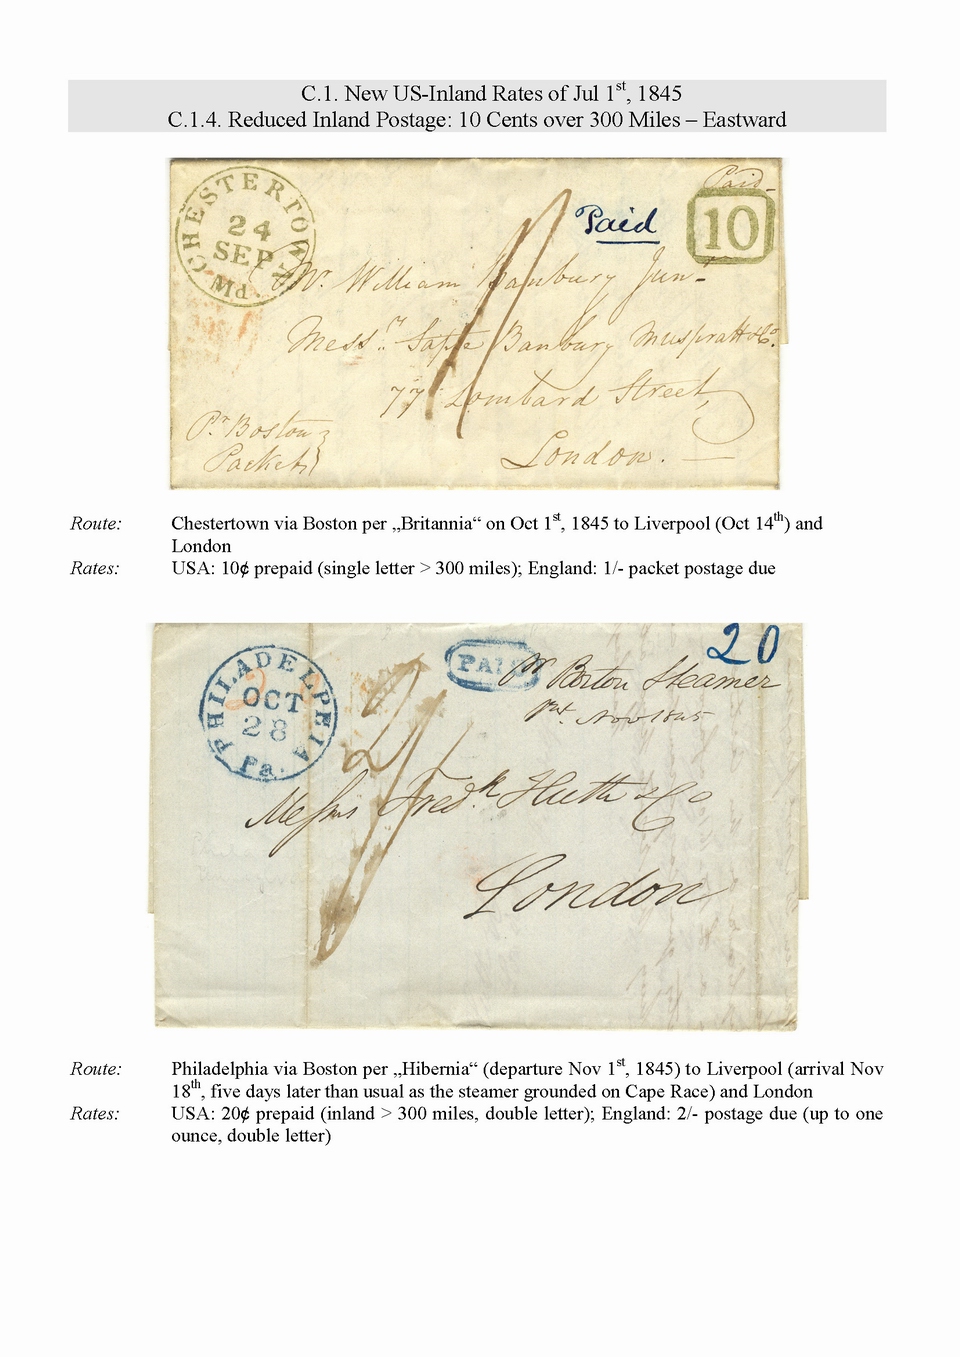 C.1. New US-Inland Rates of Jul 1st, 1845
C.1.4. Reduced Inland Postage: 10 Cents over 300 Miles – Eastward
CHESTERTOWN
24
SEP
Md
Paid
Paid
10
Mr. William Banbury Junr
Messrs Banbury Muspratt & Co.
77 Lombard Street,
London.
Pr Boston
Packet
Route: Chestertown via Boston per „Britannia“ on Oct 1st, 1845 to Liverpool (Oct 14th) and
London
Rates: USA: 10¢ prepaid (single letter > 300 miles); England: 1/- packet postage due
PHILADELPHIA
OCT
28
Pa.
PAID
20
pr Boston Steamer
1st Nov 1845
2/
Messrs Fredk Huth & Co
London
Route: Philadelphia via Boston per „Hibernia“ (departure Nov 1st, 1845) to Liverpool (arrival Nov
18th, five days later than usual as the steamer grounded on Cape Race) and London
Rates: USA: 20¢ prepaid (inland > 300 miles, double letter); England: 2/- postage due (up to one
ounce, double letter)